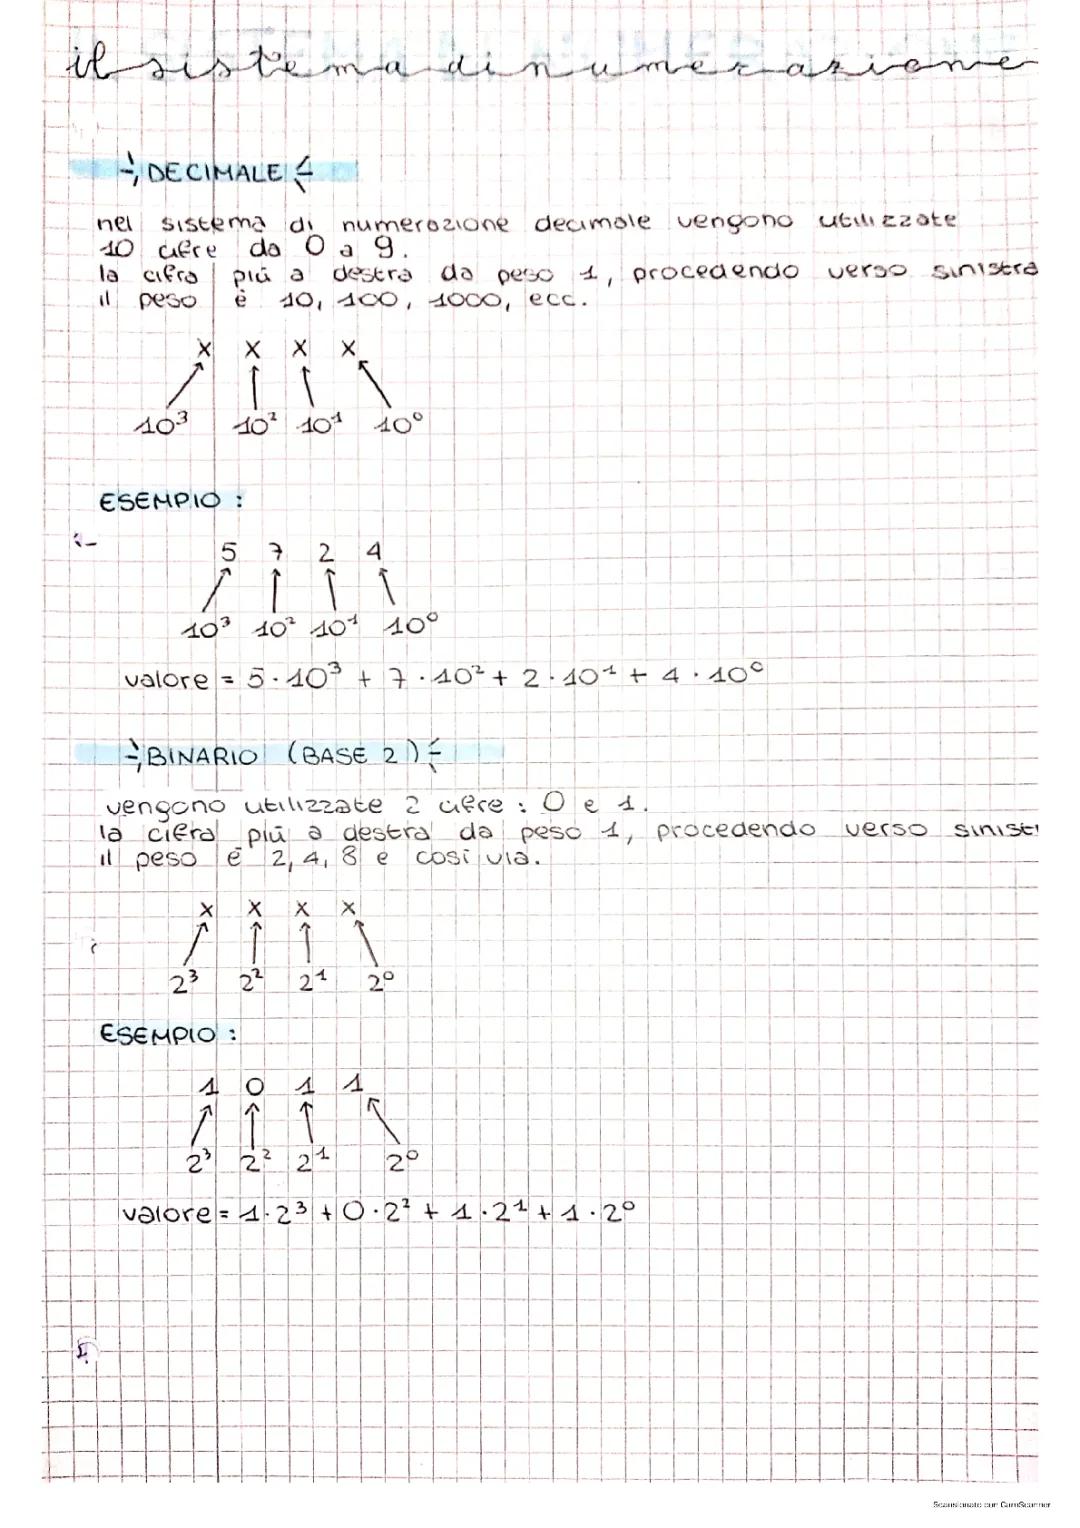 il sistema di numerazione
DECIMALE
nel sistema di numerazione decimale vengono utilizzate
10 cifre da 0 a 9.
la cifra più a destra da peso 1, procedendo verso sinistra
il peso è 10, 100, 1000, ecc.
X X X X
10³ 10² 10¹ 10⁰
ESEMPIO :
5 7 2 4
10³ 10² 10¹ 10⁰
valore = 5·10³ + 7·10² + 2·10¹ + 4·10⁰
BINARIO (BASE 2)
vengono utilizzate 2 cifre : 0 e 1.
la cifra più a destra da peso 1, procedendo verso sinist
il peso è 2, 4, 8 e così via.
X X X X
2³ 2² 2¹ 2⁰
ESEMPIO :
1 0 1 1
2³ 2² 2¹ 2⁰
valore = 1·2³ + 0·2² + 1·2¹ + 1·2⁰
Scansionato con CamScanner